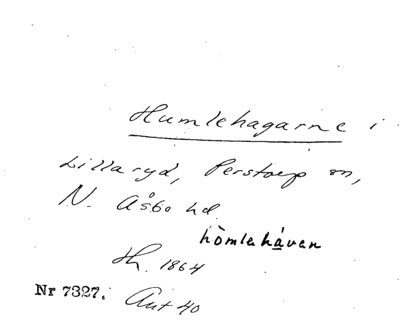 Humlehagarne i
Lillaryd, Perstorp sn,
N. Åsbo hd.
hòmlehávan
Th. 1864
Nr 7327. Ant 40